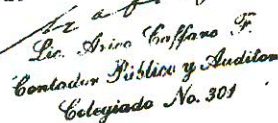 Lic. Arico Caffaro F.
Contador Público y Auditor
Colegiado No. 301